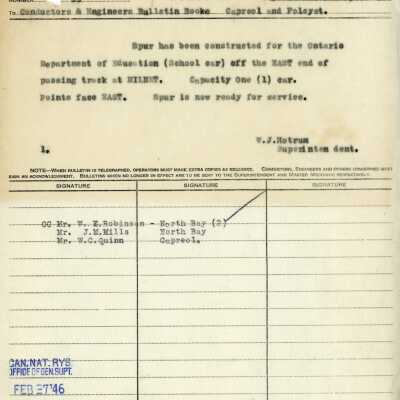 To Conductors & Engineers Bulletin Books Capreol and Foleyet.
Spur has been constructed for the Ontario
Department of Education (School car) off the EAST end of
passing track at MILNET. Capacity One (1) car.
Points face EAST. Spur is now ready for service.
W.J.Hotrum
1. Superinten dent.
NOTE—WHEN BULLETIN IS TELEGRAPHED, OPERATORS MUST MAKE EXTRA COPIES AS REQUIRED. CONDUCTORS, ENGINEERS AND OTHERS CONCERNED MUST
SIGN AN ACKNOWLEDGMENT. BULLETINS WHEN NO LONGER IN EFFECT ARE TO BE SENT TO THE SUPERINTENDENT AND MASTER MECHANIC RESPECTIVELY.
SIGNATURE SIGNATURE SIGNATURE
CC Mr. W. E.Robinson - North Bay (2)
Mr. J.M.Mills North Bay
Mr. W.C.Quinn Capreol.
CAN. NAT. RYS.
OFFICE OF GEN. SUPT.
FEB 27 '46